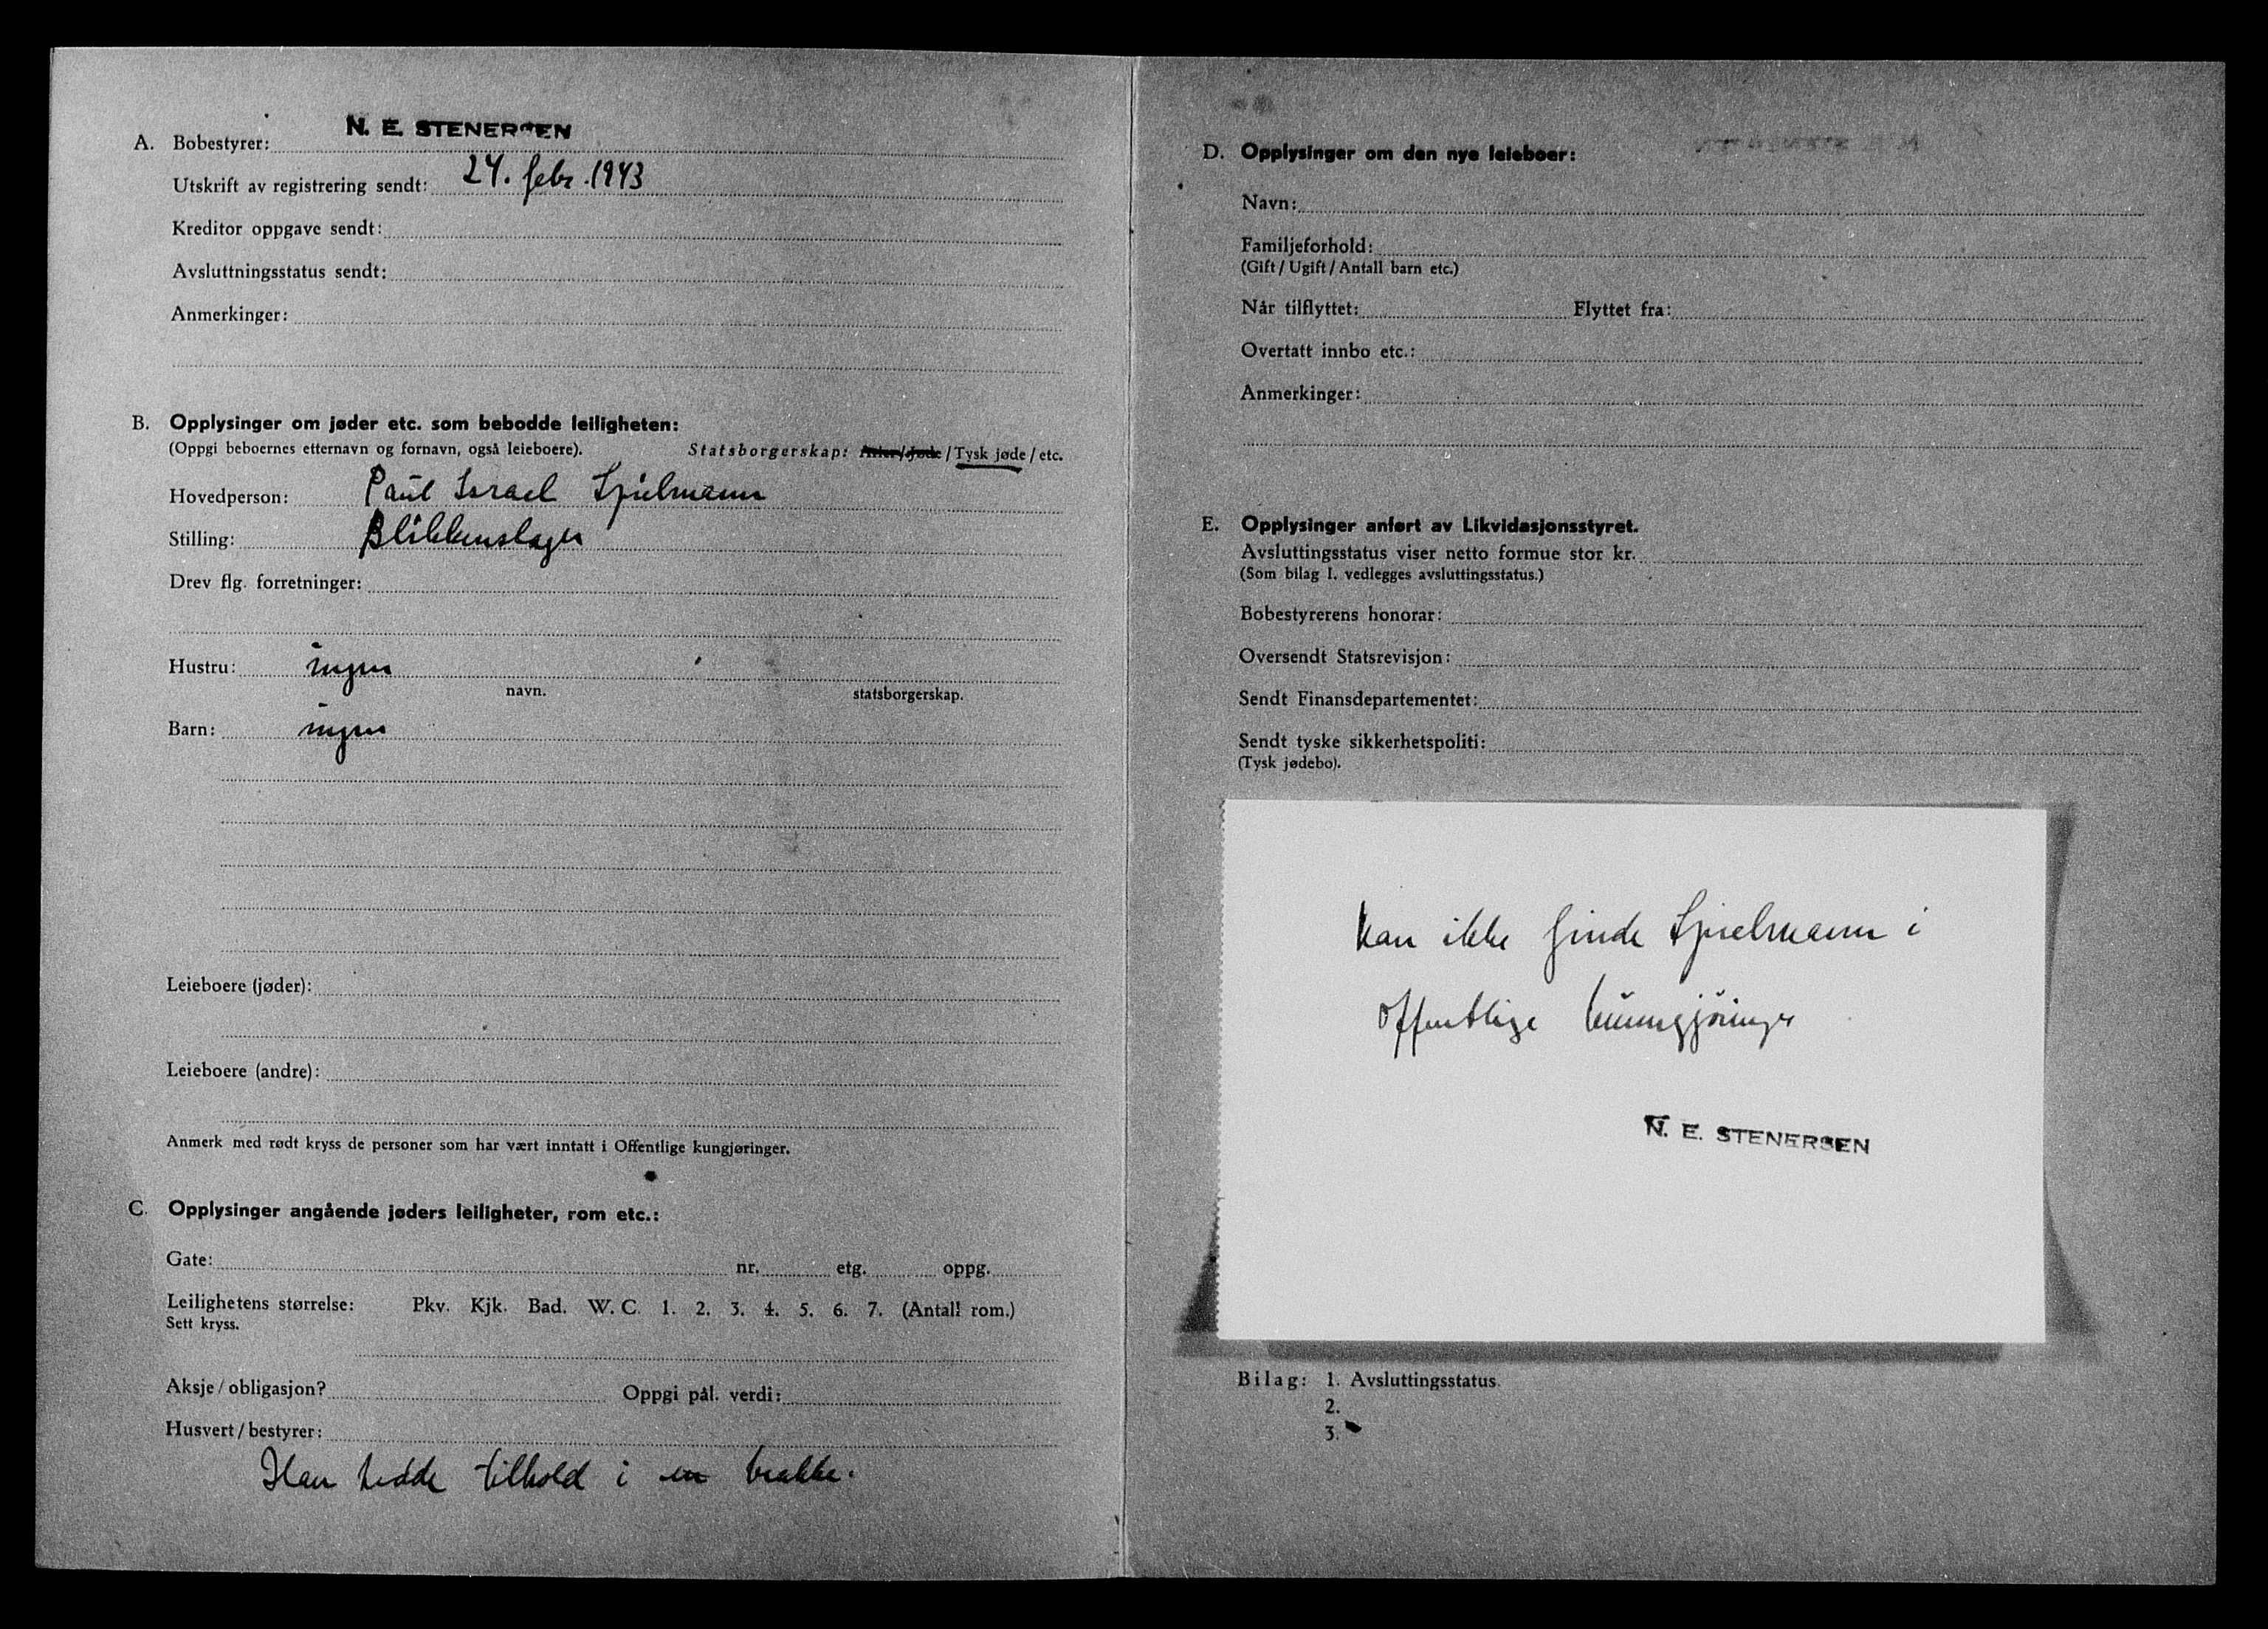 A. Bobestyrer: N. E. STENERSEN
Utskrift av registrering sendt: 24. febr. 1943
Kreditor oppgave sendt:
Avsluttningsstatus sendt:
Anmerkinger:
B. Opplysinger om jøder etc. som bebodde leiligheten:
(Oppgi beboernes etternavn og fornavn, også leieboere). Statsborgerskap: Arier/Jøde / Tysk jøde / etc.
Hovedperson: Paul Israel Spielmann
Stilling: Blikkenslager
Drev flg. forretninger:
Hustru: ingen
navn. statsborgerskap.
Barn: ingen
Leieboere (jøder):
Leieboere (andre):
Anmerk med rødt kryss de personer som har vært inntatt i Offentlige kungjøringer.
C. Opplysinger angående jøders leiligheter, rom etc.:
Gate: nr. etg. oppg.
Leilighetens størrelse: Pkv. Kjk. Bad. W. C. 1. 2. 3. 4. 5. 6. 7. (Antall rom.)
Sett kryss.
Aksje / obligasjon? Oppgi pål. verdi:
Husvert / bestyrer:
Han hadde tilhold i en brakke.
D. Opplysinger om den nye leieboer:
Navn:
Familjeforhold:
(Gift / Ugift / Antall barn etc.)
Når tilflyttet: Flyttet fra:
Overtatt innbo etc.:
Anmerkinger:
E. Opplysinger anført av Likvidasjonsstyret.
Avsluttingsstatus viser netto formue stor kr.
(Som bilag 1. vedlegges avsluttingsstatus.)
Bobestyrerens honorar:
Oversendt Statsrevisjon:
Sendt Finansdepartementet:
Sendt tyske sikkerhetspoliti:
(Tysk jødebo).
Kan ikke finde Spielmann i
Offentlige kunngjöringer
N. E. STENERSEN
Bilag: 1. Avsluttingsstatus.
2.
3.